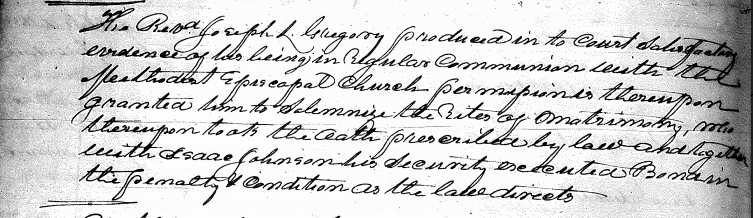 The Revd Joseph L Gregory produced in to Court Satisfactory
evidence of his being in regular Communion with the
Methodist Episcopal Church permission is thereupon
granted him to Solemnize the Rites of Matrimony, who
thereupon took the oath prescribed by law and together
with Isaac Johnson his Security executed Bond in
the penalty & Condition as the law directs